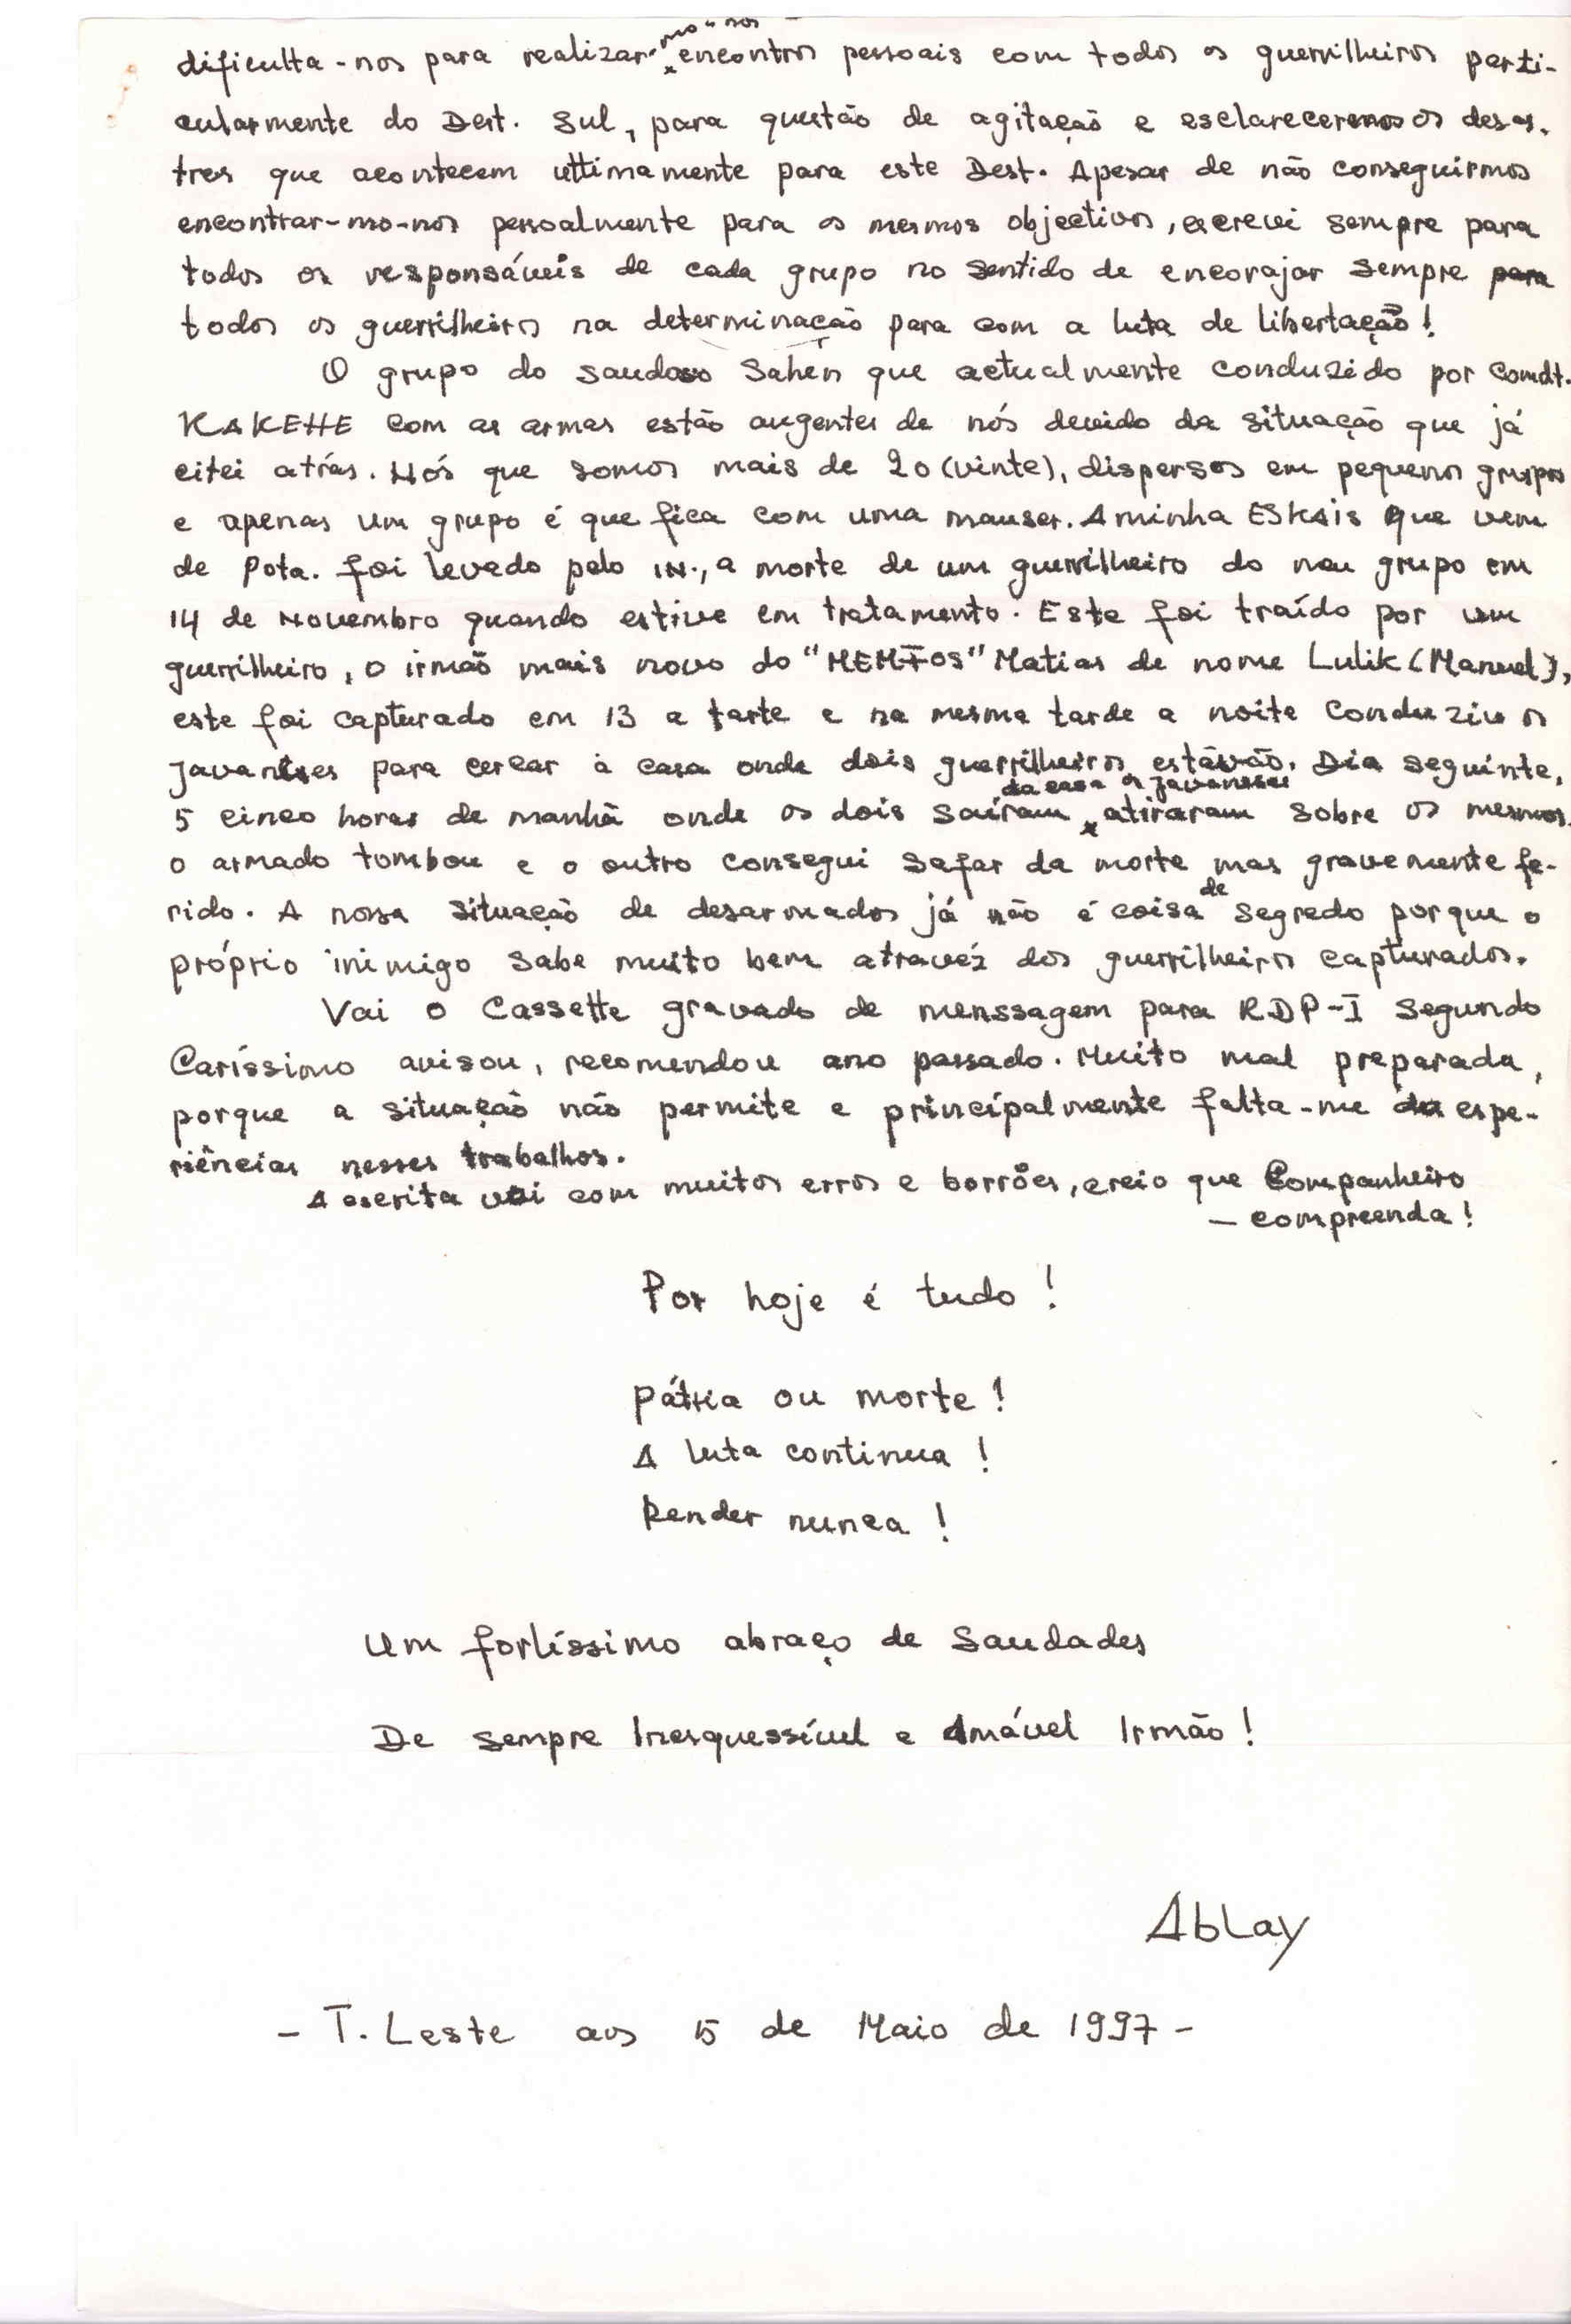 dificulta-nos para realizar-mo-nos encontros pessoais com todos os guerrilheiros parti-
cularmente do Dest. Sul, para questão de agitação e esclarecermos os desas.
tres que acontecem ultimamente para este Dest. Apesar de não conseguirmos
encontrar-mo-nos pessoalmente para os mesmos objectivos, escrevi sempre para
todos os responsáveis de cada grupo no sentido de encorajar sempre para
todos os guerrilheiros na determinação para com a luta de libertação!
O grupo do saudoso Sahén que actualmente conduzido por Comdt.
KAKEHE com as armas estão augentes de nós devido da situação que já
citei atrás. Nós que somos mais de 20 (vinte), dispersos em pequenos grupos
e apenas um grupo é que fica com uma mauser. A minha ESKAis que vem
de Pota. foi levado pelo IN., a morte de um guerrilheiro do meu grupo em
14 de Novembro quando estive em tratamento. Este foi traído por um
guerrilheiro, o irmão mais novo do "MEMFOS" Matias de nome Lulik (Manuel),
este foi capturado em 13 a tarte e na mesma tarde a noite conduziu os
javaneses para cercar à casa onde dois guerrilheiros estavão. Dia seguinte,
5 cinco horas de manhã onde os dois saíram da casa os javaneses atiraram sobre os mesmos.
o armado tombou e o outro consegui safar da morte mas gravemente fe-
rido. A nossa situação de desarmados já não é coisa de segredo porque o
próprio inimigo sabe muito bem atravéz dos guerrilheiros capturados.
Vai o Cassette gravado de menssagem para RDP-I segundo
Caríssimo avisou, recomendou ano passado. Muito mal preparada,
porque a situação não permite e principalmente falta-me de espe-
riências nesses trabalhos.
A escrita vai com muitos erros e borrões, creio que Companheiro
- compreenda!
Por hoje é tudo!
Pátria ou morte!
A luta continua!
Render nunca!
Um fortíssimo abraço de Saudades
De sempre Inesquessível e Amável Irmão!
Ablay
- T. Leste aos 5 de Maio de 1997 -